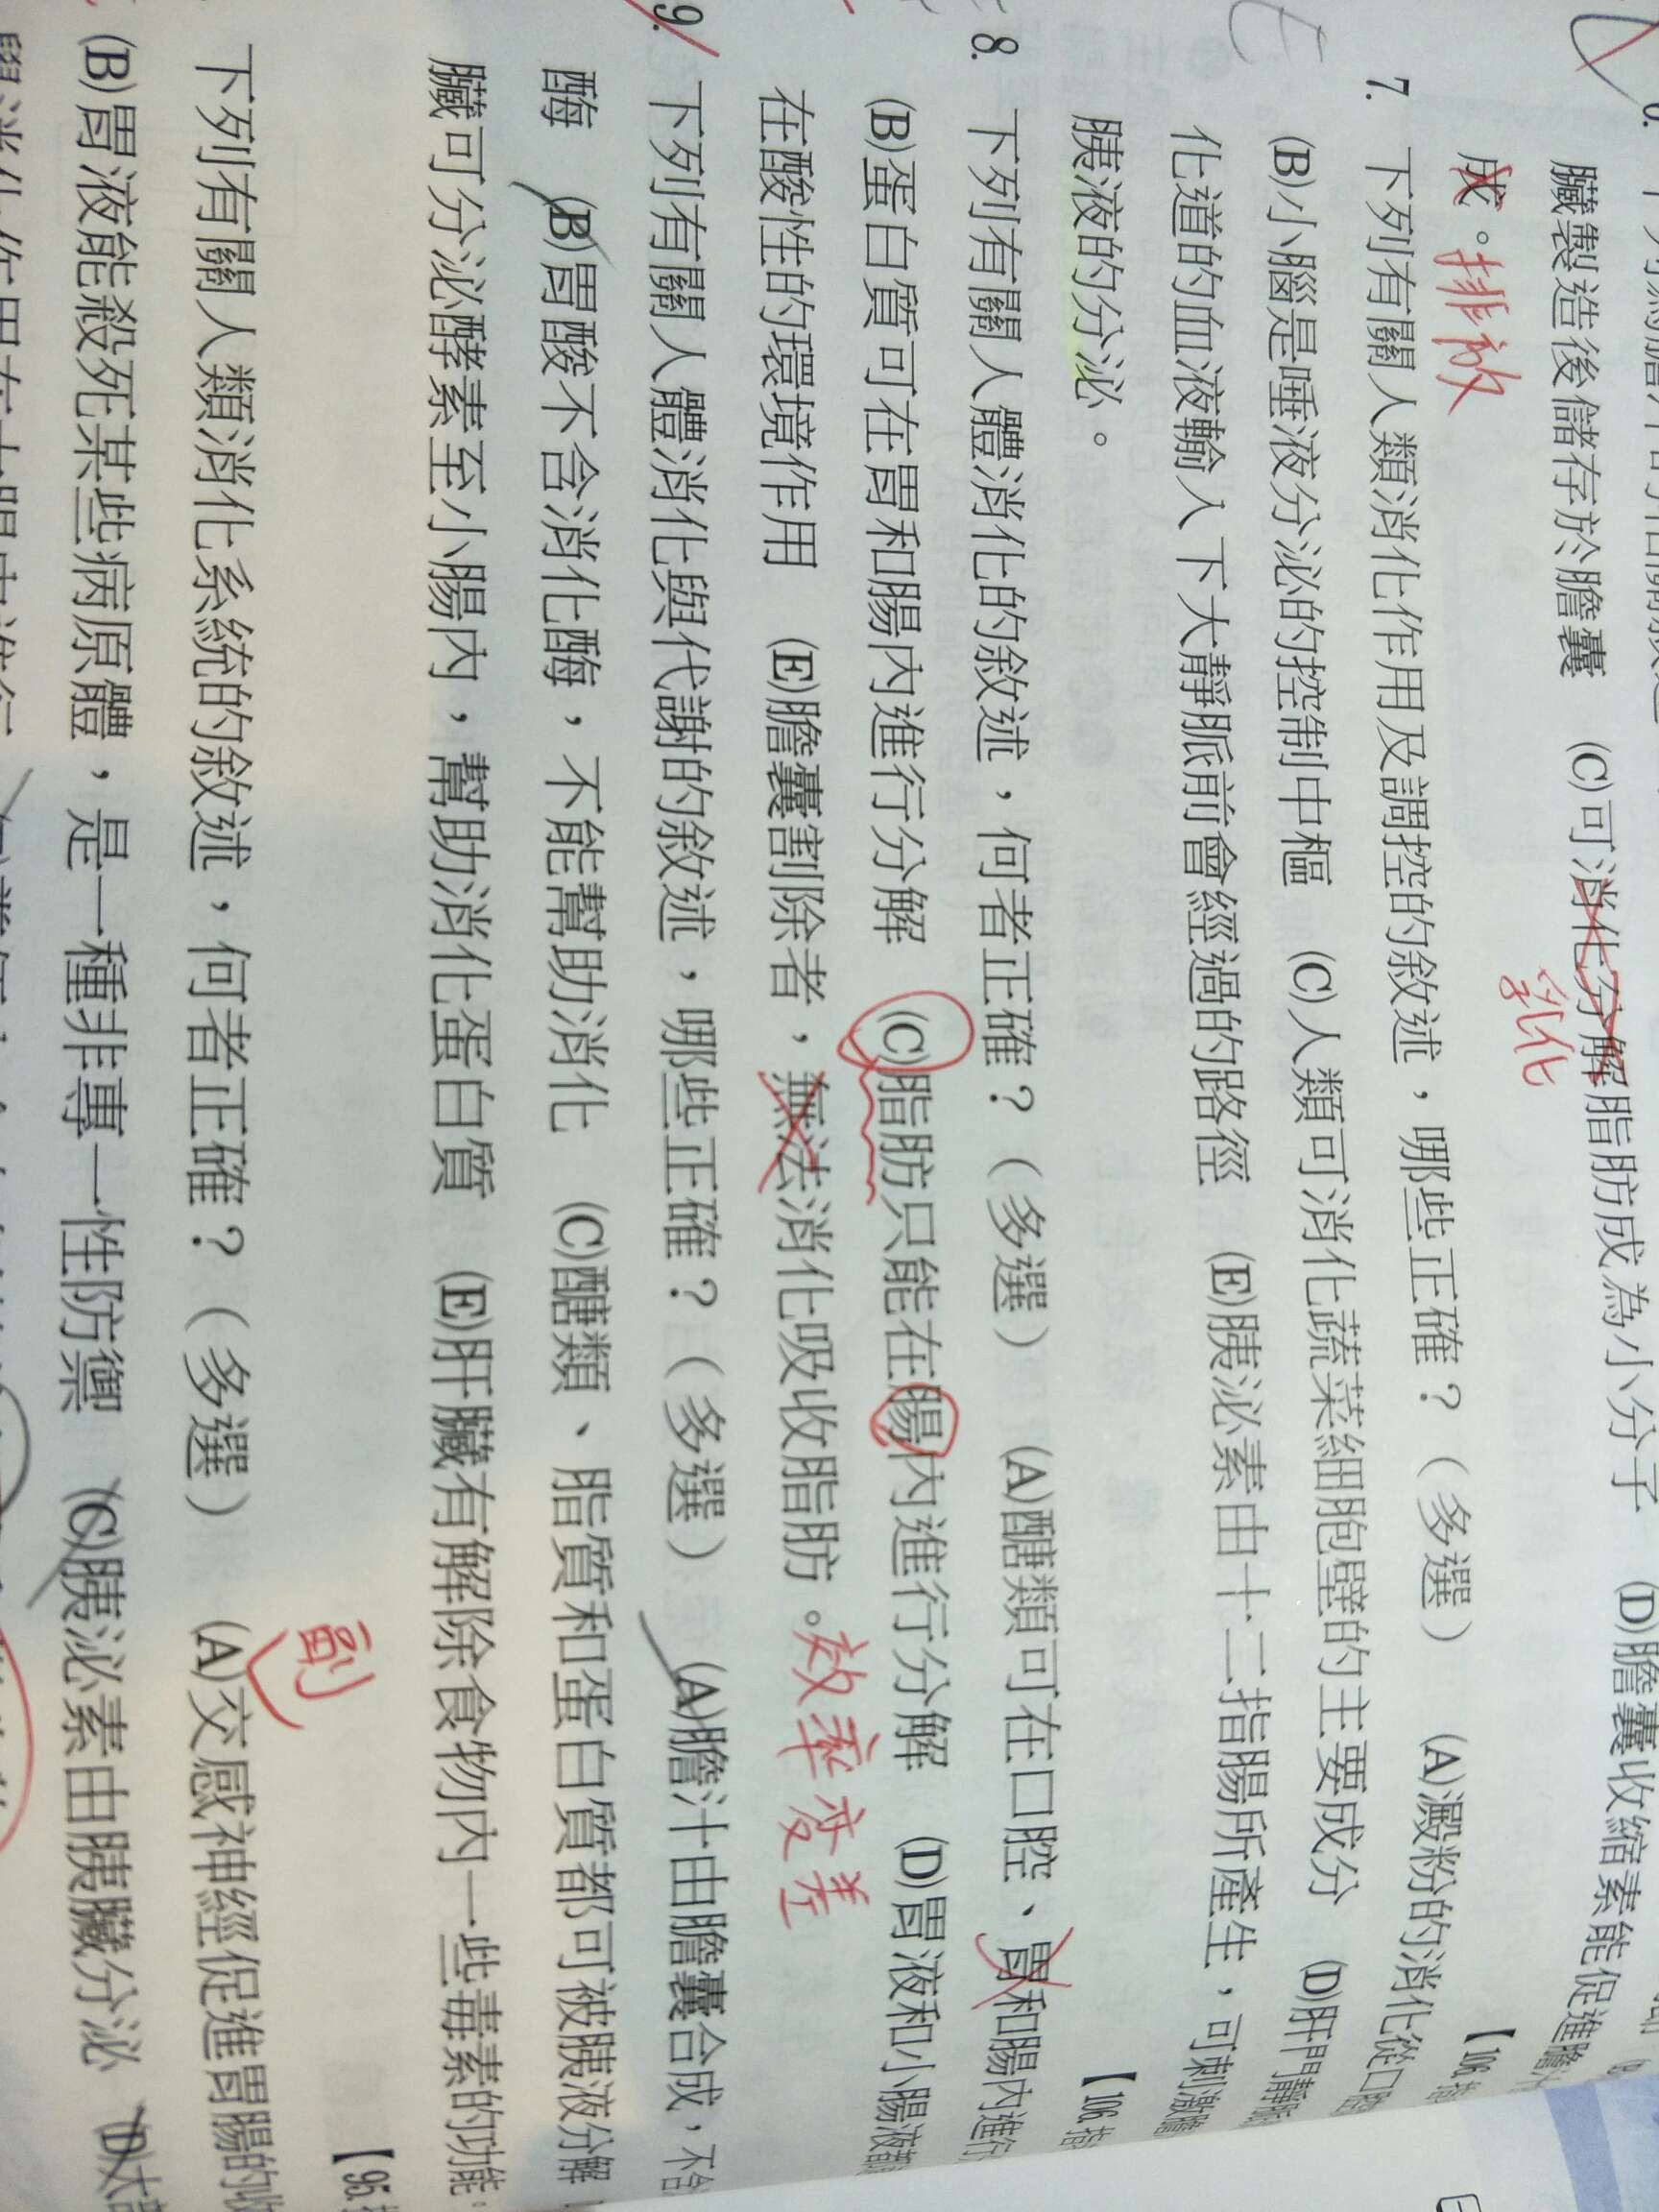 臟製造後儲存於膽囊　(C)可消化分解脂肪成為小分子　(D)膽囊收縮素能促進膽汁
乳化
成。排放
【106.指
7. 下列有關人類消化作用及調控的敘述，哪些正確？（多選）　(A)澱粉的消化從口腔
(B)小腦是唾液分泌的控制中樞　(C)人類可消化蔬菜細胞壁的主要成分　(D)肝門靜脈
化道的血液輸入下大靜脈前會經過的路徑　(E)胰泌素由十二指腸所產生，可刺激膽
胰液的分泌。
【106.指
8. 下列有關人體消化的敘述，何者正確？（多選）　(A)醣類可在口腔、胃和腸內進行
(B)蛋白質可在胃和腸內進行分解　(C)脂肪只能在腸內進行分解　(D)胃液和小腸液都
在酸性的環境作用　(E)膽囊割除者，無法消化吸收脂肪。效率變差
9. 下列有關人體消化與代謝的敘述，哪些正確？（多選）　(A)膽汁由膽囊合成，不含
酶　(B)胃酸不含消化酶，不能幫助消化　(C)醣類、脂質和蛋白質都可被胰液分解
臟可分泌酵素至小腸內，幫助消化蛋白質　(E)肝臟有解除食物內一些毒素的功能。
【95.
副
下列有關人類消化系統的敘述，何者正確？（多選）　(A)交感神經促進胃腸的收
(B)胃液能殺死某些病原體，是一種非專一性防禦　(C)胰泌素由胰臟分泌　(D)大部